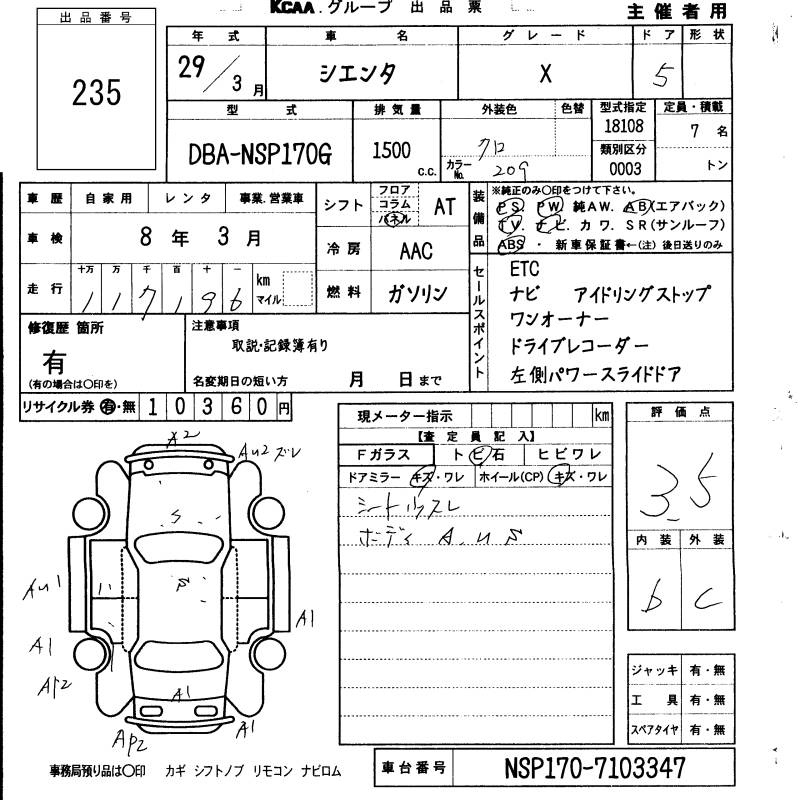 KCAA.グループ 出品票
主催者用
出品番号
235
年式 車名 グレード ドア 形状
29/3月 シエンタ X 5
型式 排気量 外装色 色替 型式指定 定員・積載
DBA-NSP170G 1500 c.c. クロ 18108 7名
カラーNo. 209 類別区分 0003 トン
車歴 自家用 レンタ 事業.営業車
車検 8年3月
走行 十万 万 千 百 十 一
117196 km マイル
シフト フロア コラム パネル AT
冷房 AAC
燃料 ガソリン
装備品 ※純正のみ〇印をつけて下さい。
PS PW 純AW. AB(エアバック)
TV. ナビ. カワ. SR(サンルーフ)
ABS ・ 新車保証書←(注) 後日送りのみ
セールスポイント
ETC
ナビ アイドリングストップ
ワンオーナー
ドライブレコーダー
左側パワースライドドア
修復歴 箇所
有
(有の場合は〇印を)
注意事項
取説・記録簿有り
名変期日の短い方 月 日まで
リサイクル券 有・無 10360円
現メーター指示 km
【査定員記入】
Fガラス トビ石 ヒビワレ
ドアミラー キズ・ワレ ホイール(CP) キズ・ワレ
シートウスレ
ボディ A.U S
評価点
3.5
内装 外装
b c
ジャッキ 有・無
工具 有・無
スペアタイヤ 有・無
A2
AU2 ズレ
S
AU1
A1
A1
AP2
A1
A1
AP2
事務局預り品は〇印 カギ シフトノブ リモコン ナビロム
車台番号 NSP170-7103347